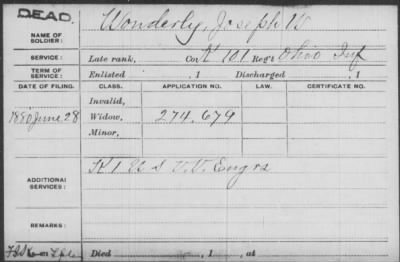 DEAD.
Wonderly, Joseph W
NAME OF SOLDIER:
SERVICE: Late rank, Co. K 101 Reg't Ohio Inf
TERM OF SERVICE: Enlisted , 1 Discharged , 1
DATE OF FILING. CLASS. APPLICATION NO. LAW. CERTIFICATE NO.
Invalid,
1880 June 28 Widow, 274.679
Minor,
ADDITIONAL SERVICES: K 1 U S V.V. Engrs
REMARKS:
Died , 1 , at